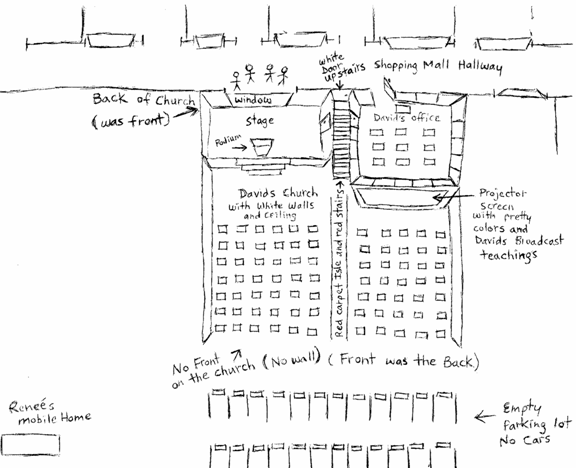 white
Door
upstairs
Shopping Mall Hallway
Back of Church
(was front)
window
stage
Podium
David's office
Davids Church
with White Walls
and Ceiling
Red carpet Isle and red stairs
Projector
Screen
with pretty
colors and
Davids Broadcast
teachings
No Front
on the church
(No wall)
(Front was the Back)
Reneé's
mobile Home
Empty
Parking lot
No Cars